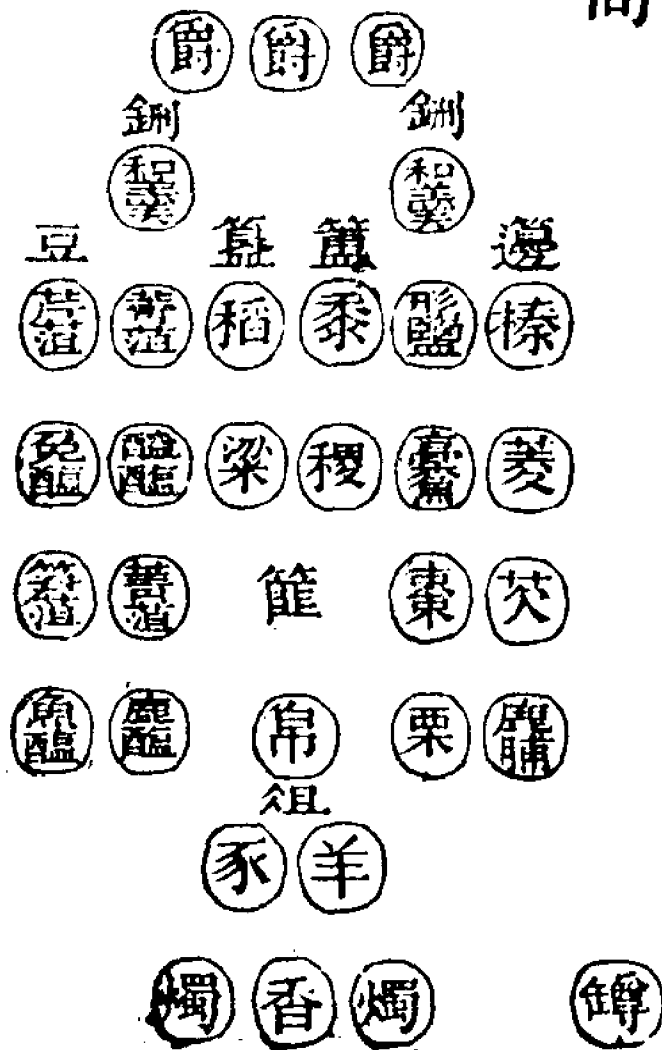 爵 爵 爵
鉶 鉶
和羹 和羹
豆 簋 簠 籩
芹菹 韭菹 稻 黍 形鹽 榛
兔醢 醓醢 粱 稷 藁魚 菱
筍菹 菁菹 篚 棗 芡
魚醢 鹿醢 帛 栗 鹿脯
俎
豕 羊
燭 香 燭 罇